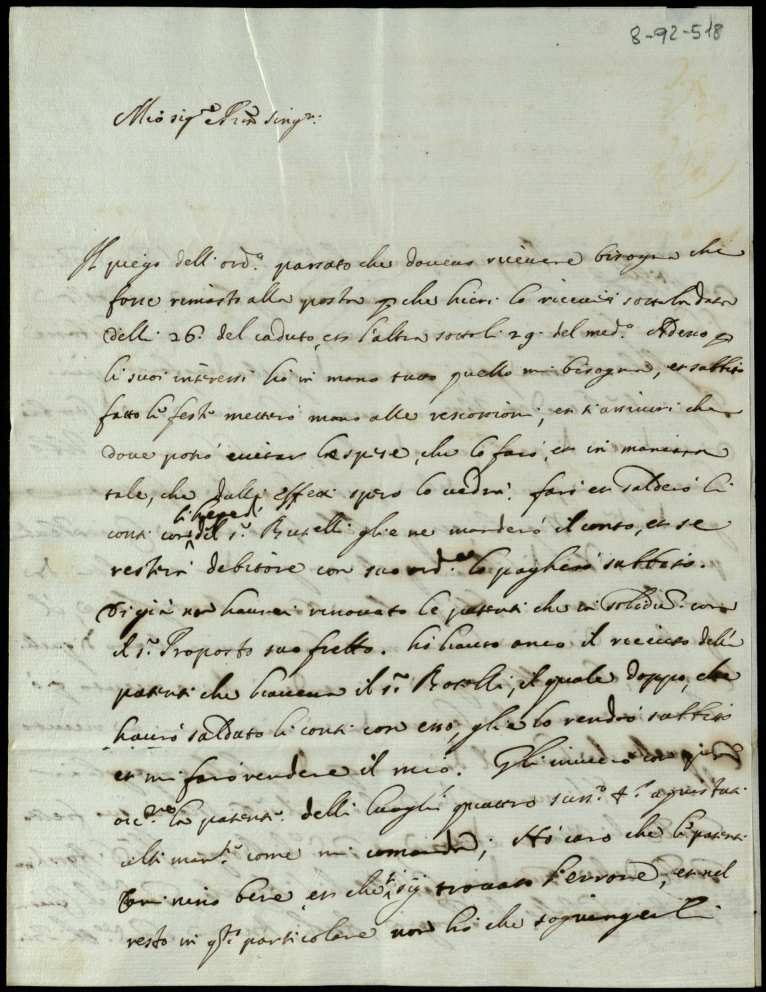 8-92-518
Mio sig.re e Pron sing.r:
Il piego dell'ord.o passato che doueuo riceuere bisogna che
fosse rimasto alla posta p che hieri lo riceuei sotto la data
delli 26. del caduto, et l'altra sotto li 29. del med.o Adesso p
li suoi interessi hò in mano tutto quello mi bisogna, et subbito
fatto le feste metterò mano alle rescossioni, et si assicuri che
doue potrò euitar le spese, che lo farò, et in maniera
tale, che dalli effetti spero lo uedrà. farò et salderò li
conti con il s.r Buselli gli e ne manderò il conto, et se
resterà debitore con suo ord.e lo pagherò subbito.
Di già non haurei rinouato le patenti che in solidu con
il s.r Proposto suo fretto. hò hauto anco il receuto delle
patenti che haueua il s.r Boselli, il quale doppo, che
haurò saldato li conti con esso, gli e lo renderò subbito
et mi farò rendere il mio. Gli inuierò con
le patenti delli luoghi quattro acquistati
come mi comanda; Hò caro che le patenti
bene, et che si sij trouato l'errore, et nel
resto in q.to particolare non hò che sogiungerli